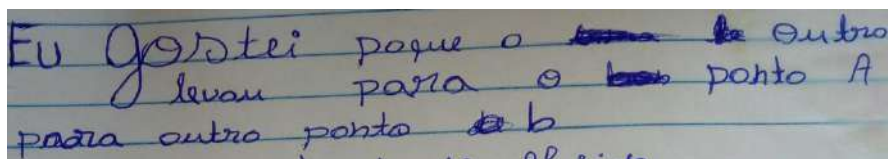 Eu gostei poque o outro
levou para o ponto A
para outro ponto b